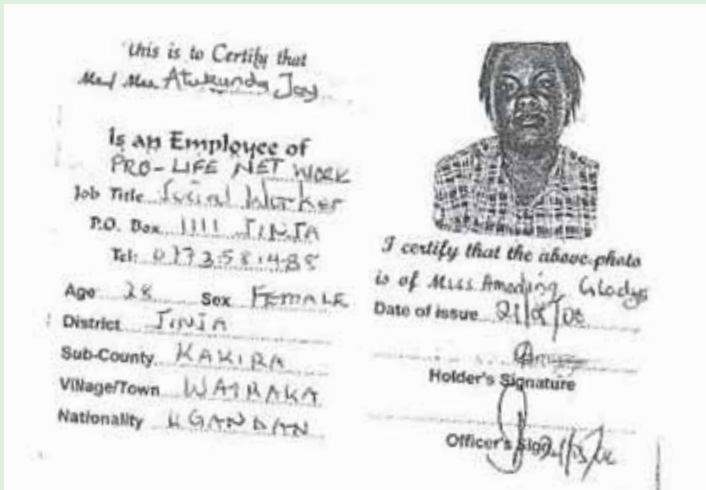 this is to Certify that
Mr/ Mrs Atukunda Joy
is an Employee of
PRO-LIFE NET WORK
Job Title Social Worker
P.O. Box 1111 JINJA
Tel:
Age 28 Sex FEMALE
District JINJA
Sub-County KAKIRA
Village/Town WAIRAKA
Nationality UGANDAN
I certify that the above photo
is of Miss Amoding Gladys
Date of issue
Holder's Signature
Officer's Sign